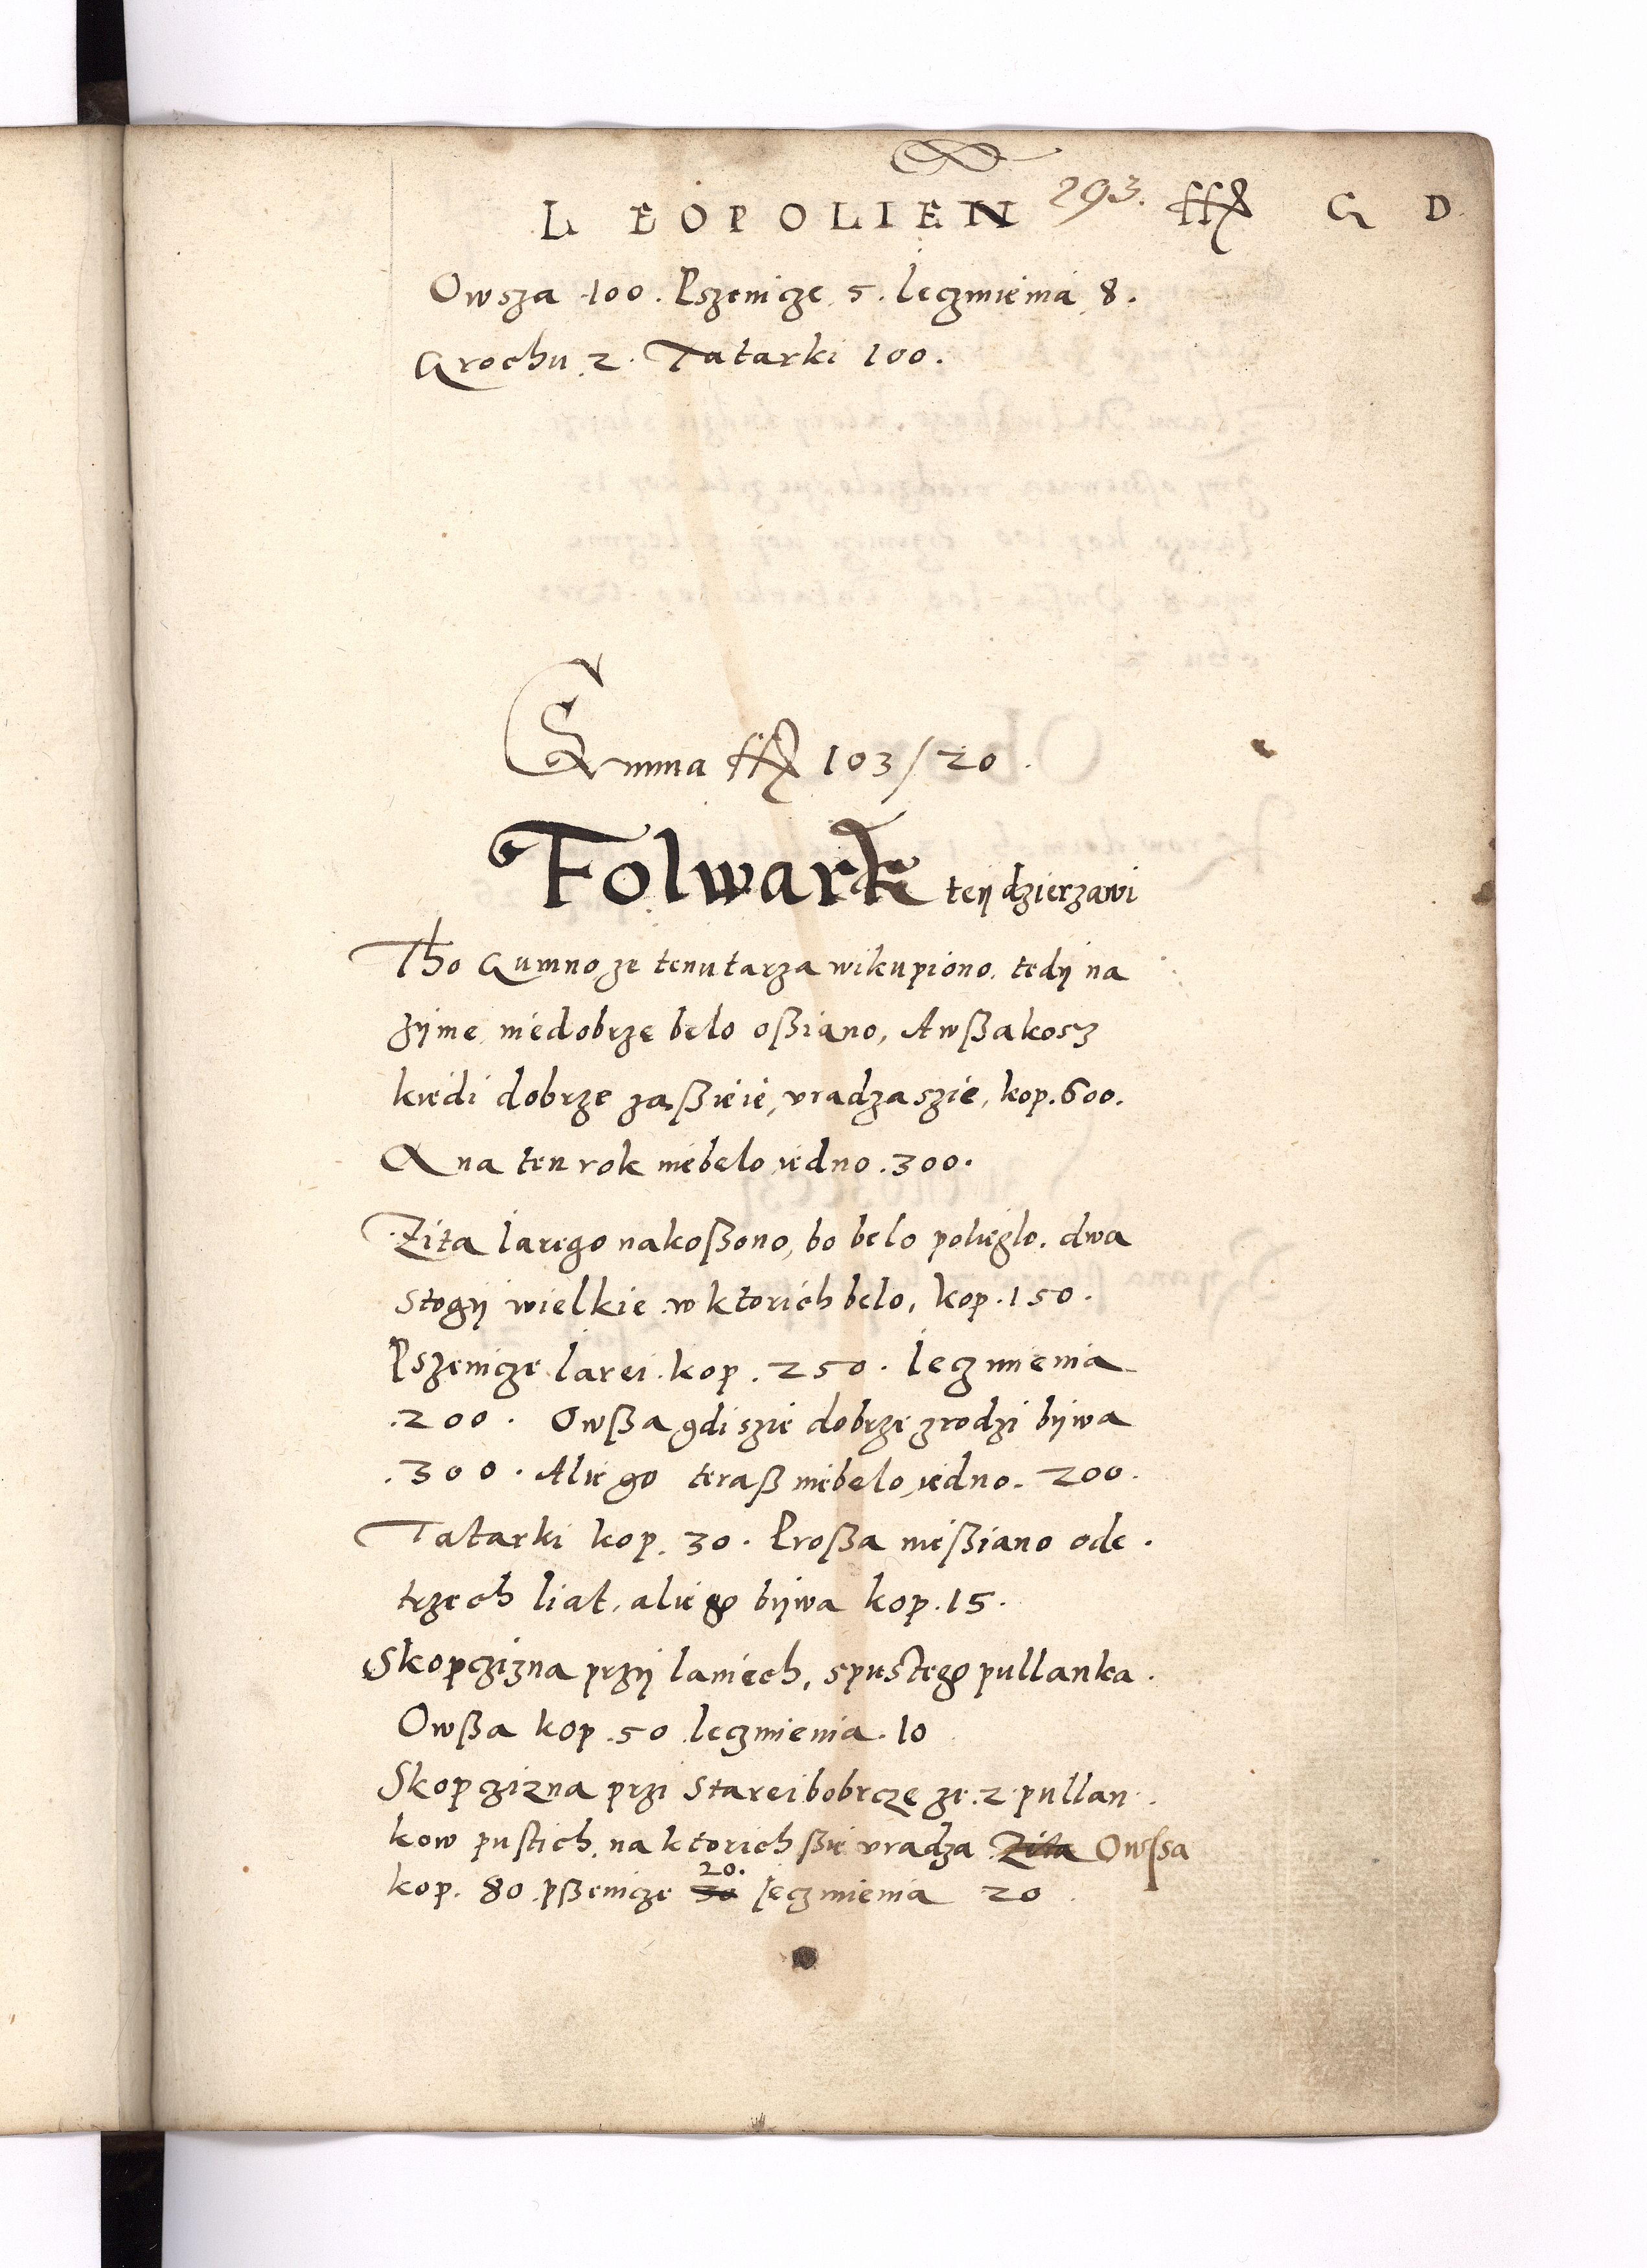 LEOPOLIEN 293. ff G D
Owsza 100. Pszenicze 5. Ieczmienia 8.
Grochu 2. Tatarki 100.
Summa ff 103/20.
Folwark teÿ dzierzawi
Tho Gumno ze tenutarza wikupiono, tedÿ na
zÿme niedobrze belo oßiano, Awßakosz
kiedi dobrze zaßieie, vradza szie, kop. 600.
A na ten rok niebelo iedno. 300.
Zita Iarego nakoßono, bo belo polieglo. dwa
Stogÿ wielkie w ktorich belo, kop. 150.
Pszenicze Iarei. kop. 250. Ieczmienia
.200. Owßa gdi szie dobrze zrodzi bÿwa
.300. Aliego teraß niebelo iedno. 200.
Tatarki kop. 30. Proßa nießiano ode.
trzech liat, aliego bÿwa kop. 15.
Skopczizna przÿ laniech, spustego pullanka.
Owßa kop. 50 Ieczmienia. 10
Skopczizna przi Starei bobrcze ze. 2 pullan.
kow pustich, na ktorich ßie vradza Zita Owssa
20.
kop. 80 pßenicze 30 Ieczmienia 20